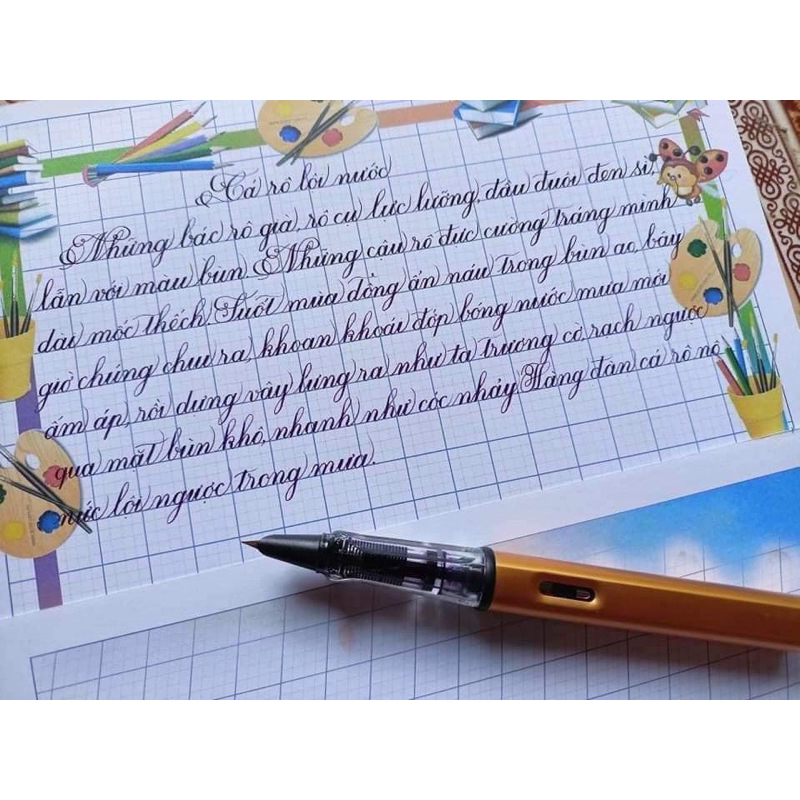 Cá rô lội nước
Những bác rô già, rô cụ lực lưỡng, đầu đuôi đen sì,
lẫn với màu bùn. Những cậu rô đực cường tráng mình
dài mốc thếch. Suốt mùa đông ẩn náu trong bùn ao, bây
giờ chúng chui ra, khoan khoái đớp bóng nước mưa mới
ấm áp, rồi dựng vây lưng ra như ta trương cờ, rạch ngược
qua mặt bùn khô, nhanh như cóc nhảy. Hàng đàn cá rô nô
nức lội ngược trong mưa.